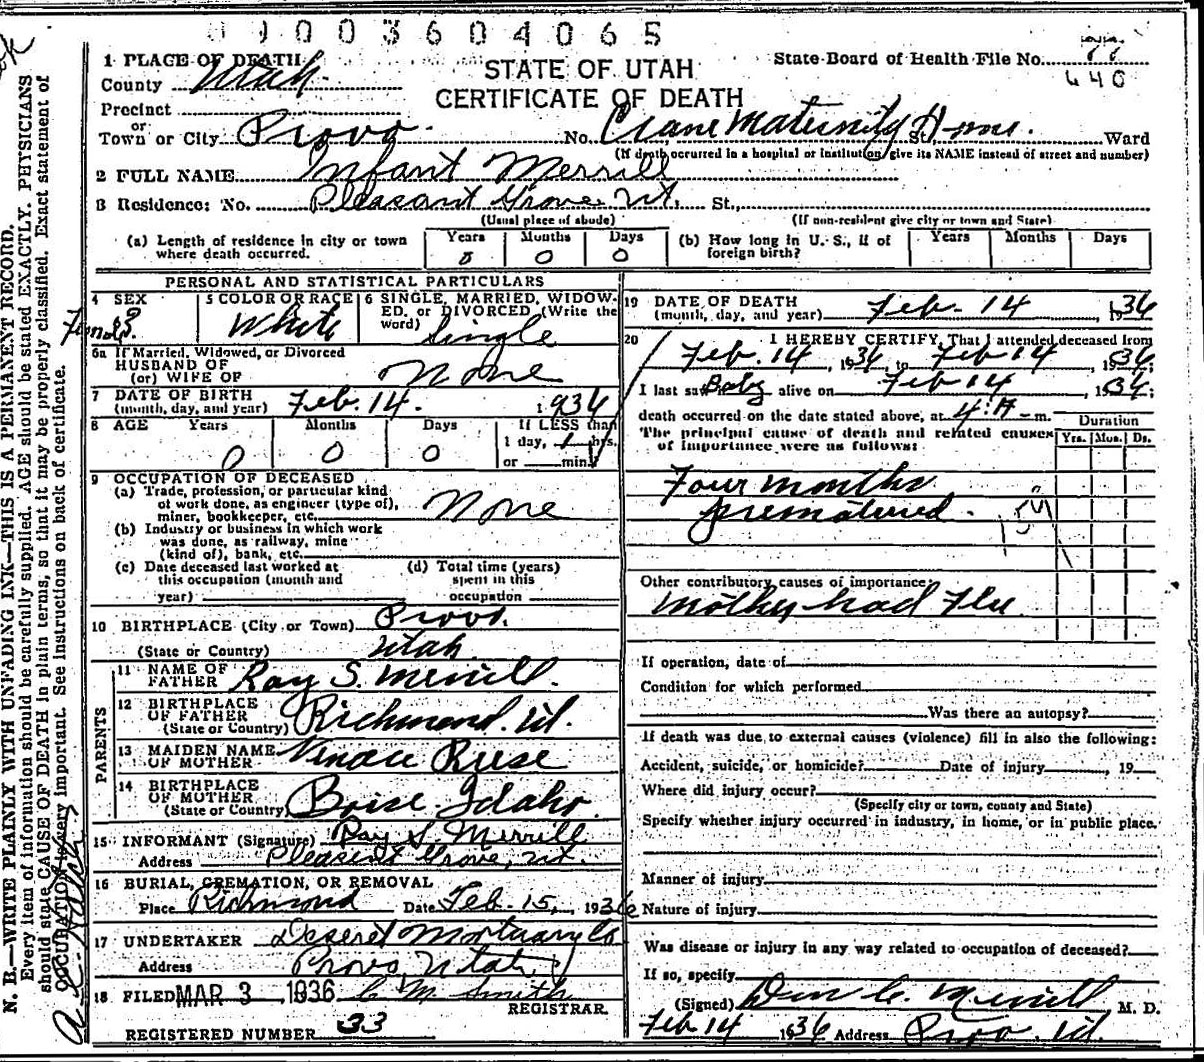 1003604065
1 PLACE OF DEATH
STATE OF UTAH
State Board of Health File No.
440
County Utah
CERTIFICATE OF DEATH
Precinct
or
Town or City Provo. No. Crane Maternity Home. St., Ward
(If death occurred in a hospital or institution, give its NAME instead of street and number)
2 FULL NAME Infant Merrill
3 Residence: No. Pleasant Grove Ut. St.,
(Usual place of abode) (If non-resident give city or town and State)
(a) Length of residence in city or town where death occurred. Years 0 Months 0 Days 0
(b) How long in U. S., if of foreign birth? Years Months Days
PERSONAL AND STATISTICAL PARTICULARS
4 SEX Female
5 COLOR OR RACE White
6 SINGLE, MARRIED, WIDOWED, or DIVORCED (Write the word) Single
6a If Married, Widowed, or Divorced
HUSBAND OF
(or) WIFE OF None
7 DATE OF BIRTH
(month, day, and year) Feb. 14. 1936
8 AGE Years 0 Months 0 Days 0 If LESS than
1 day, 1 hrs.
or min.
9 OCCUPATION OF DECEASED
(a) Trade, profession, or particular kind
of work done, as engineer (type of),
miner, bookkeeper, etc. None
(b) Industry or business in which work
was done, as railway, mine
(kind of), bank, etc.
(c) Date deceased last worked at
this occupation (month and
year)
(d) Total time (years)
spent in this
occupation
10 BIRTHPLACE (City or Town) Provo.
(State or Country) Utah
PARENTS
11 NAME OF
FATHER Ray S. Merrill.
12 BIRTHPLACE
OF FATHER
(State or Country) Richmond. Ut.
13 MAIDEN NAME
OF MOTHER Reese
14 BIRTHPLACE
OF MOTHER
(State or Country) Boise Idaho
15 INFORMANT (Signature) Ray S. Merrill
Address Pleasant Grove, Ut.
16 BURIAL, CREMATION, OR REMOVAL
Place Richmond Date Feb. 15, 1936
17 UNDERTAKER Deseret Mortuary Co
Address Provo, Utah
18 FILED MAR 3, 1936 C M Smith
REGISTRAR.
REGISTERED NUMBER 33
19 DATE OF DEATH
(month, day, and year) Feb. 14, 1936
20 I HEREBY CERTIFY, That I attended deceased from
Feb. 14, 1936 to Feb 14, 1936;
I last saw Baby alive on Feb 14, 1936;
death occurred on the date stated above, at 4:A-m.
The principal cause of death and related causes
of importance were as follows:
Duration
Yrs. Mos. Ds.
Four months
prematured.
159
Other contributory causes of importance
mother had Flu
If operation, date of
Condition for which performed
Was there an autopsy?
If death was due to external causes (violence) fill in also the following:
Accident, suicide, or homicide? Date of injury , 19
Where did injury occur?
(Specify city or town, county and State)
Specify whether injury occurred in industry, in home, or in public place.
Manner of injury
Nature of injury
Was disease or injury in any way related to occupation of deceased?
If so, specify
(Signed) Don C. Merrill M. D.
Feb 14 1936 Address Provo. Ut.
N. B.—WRITE PLAINLY WITH UNFADING INK—THIS IS A PERMANENT RECORD.
Every item of information should be carefully supplied. AGE should be stated EXACTLY. PHYSICIANS
should state CAUSE OF DEATH in plain terms, so that it may be properly classified. Exact statement of
OCCUPATION is very important. See instructions on back of certificate.